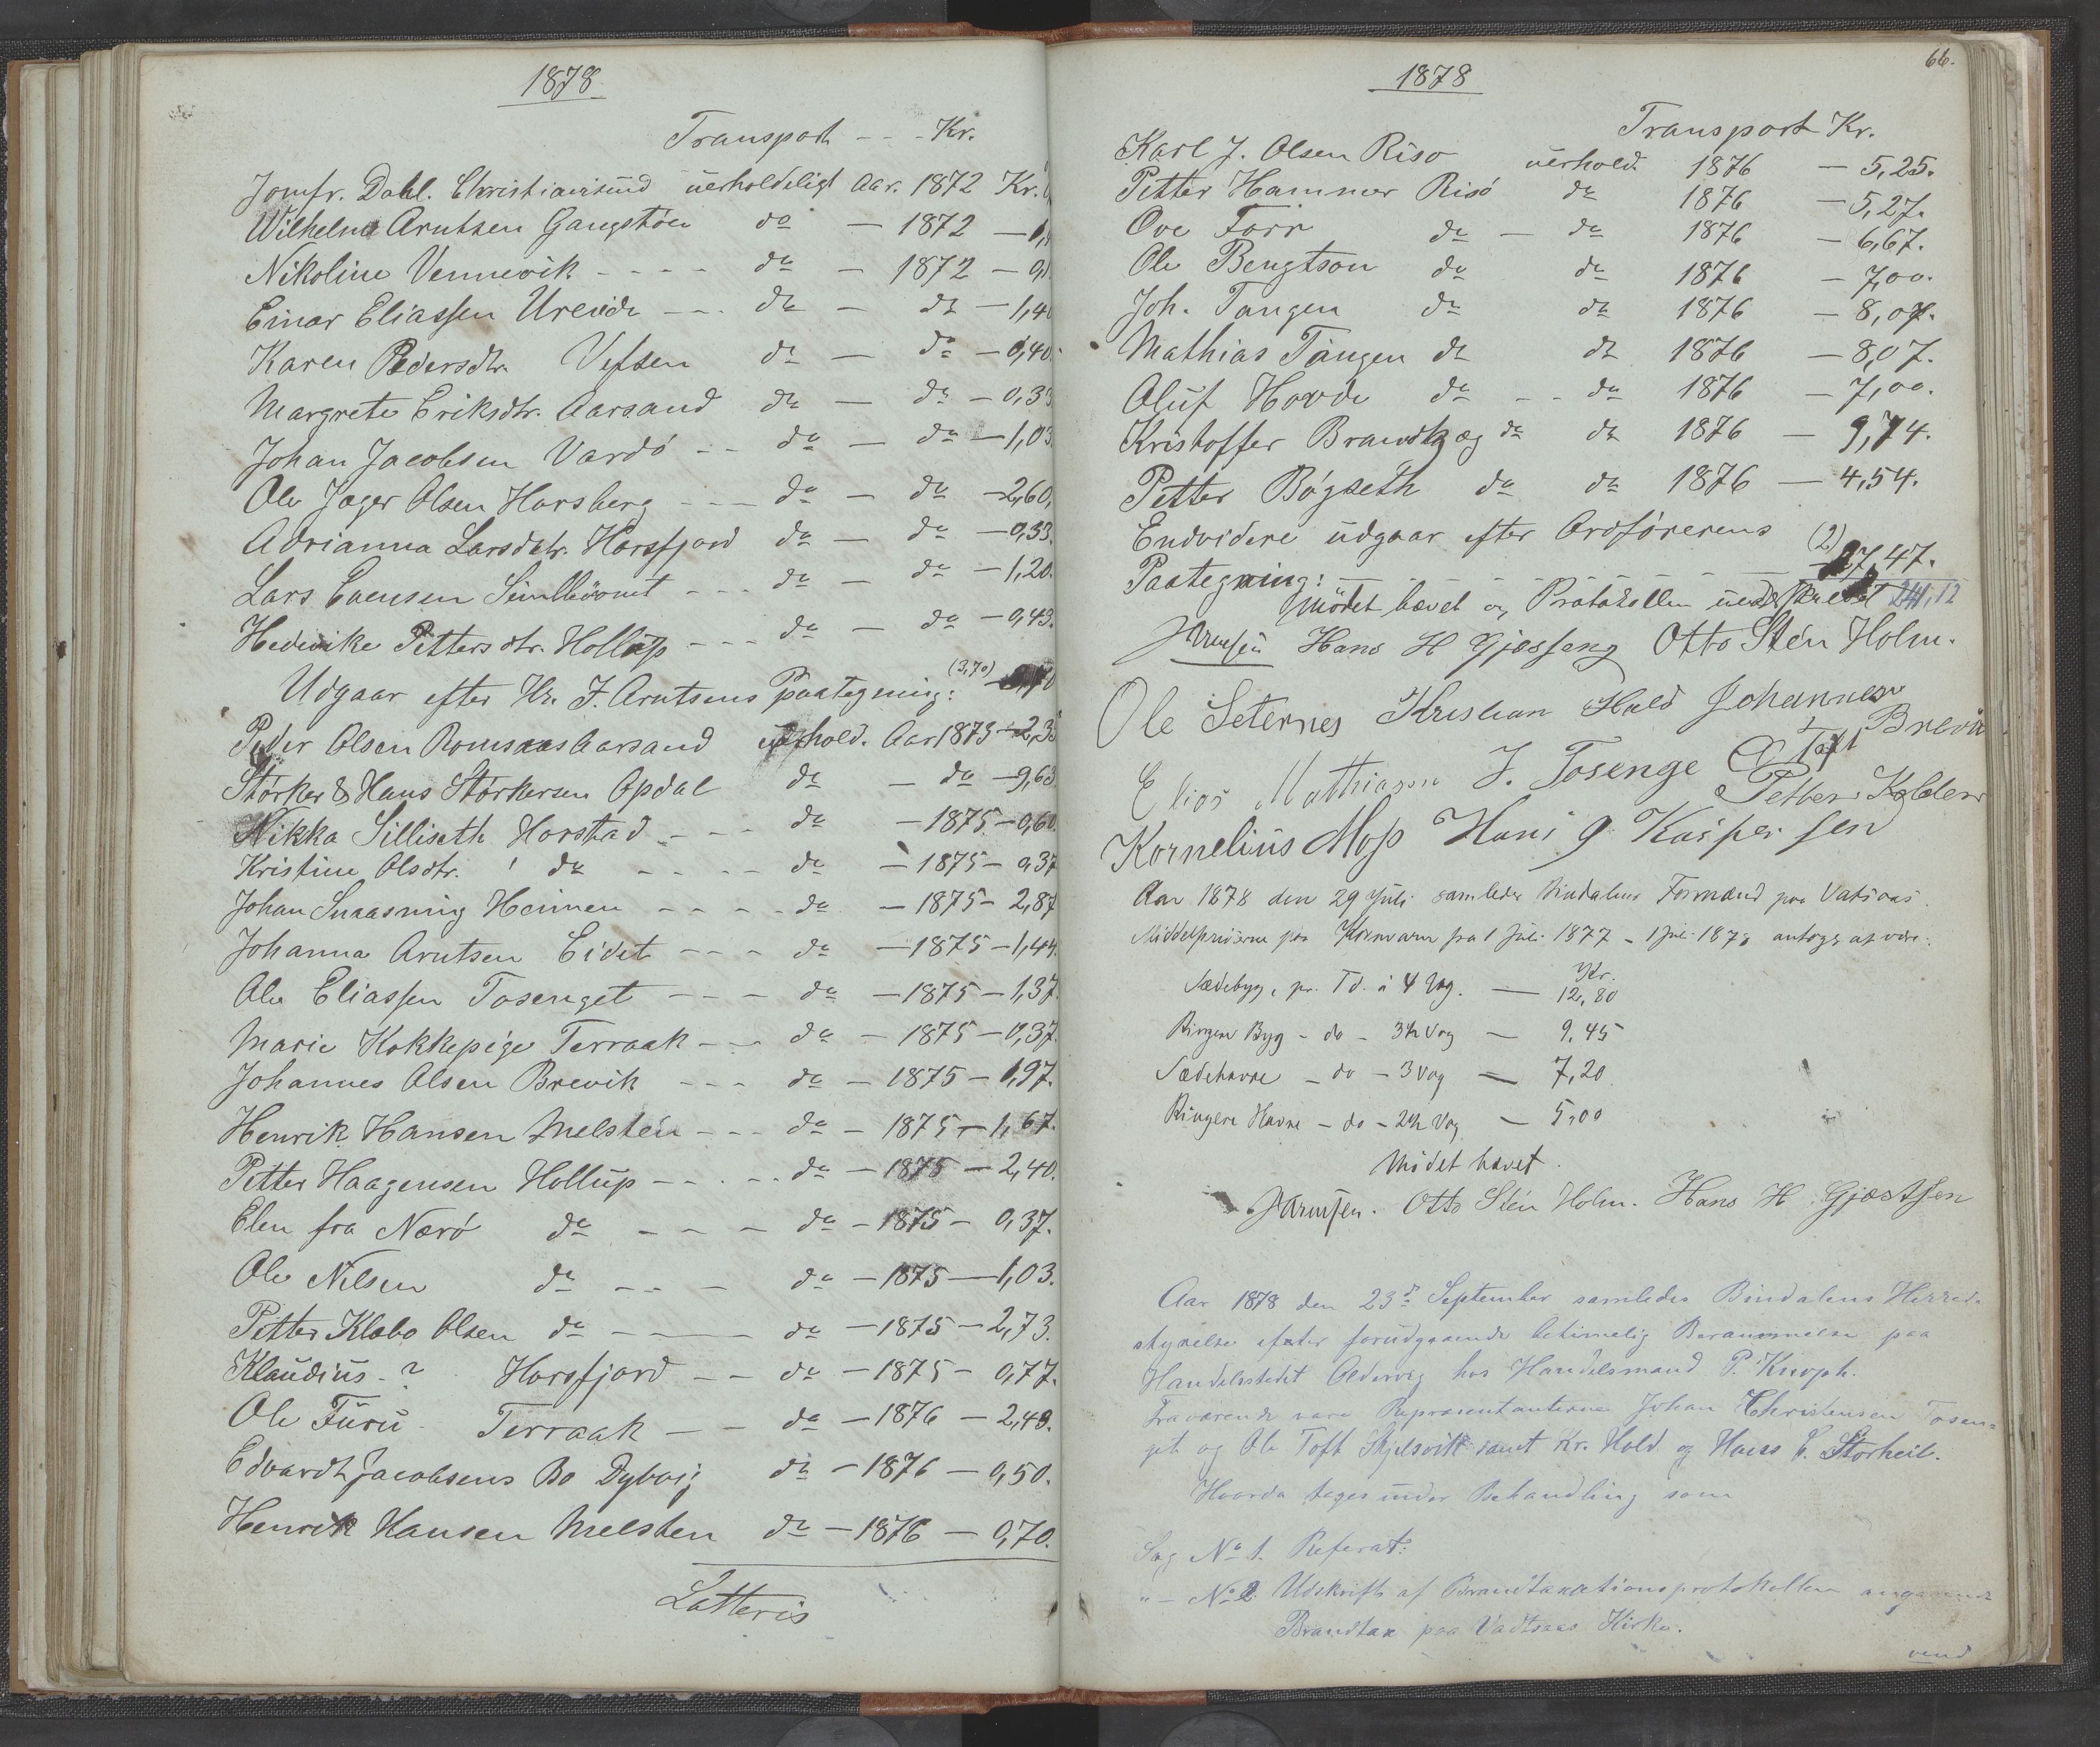 1878
Transport - - - Kr.
Jomfr. Dahl. Christiansund uerholdeligt Aar. 1872 Kr.
Wilhelm Arntsen Gangstöen do — 1872 —
Nikoline Vennevik - - - - do — 1872 —
Einar Eliassen Ureide - - - do — do — 1,40
Karen Pedersdtr. Vefsen do — do — 0,40.
Margrete Eriksdtr. Aarsand do — do — 0,33
Johan Jacobsen Vardö - - do — do — 1,03.
Ole Jager Olsen Horsberg - - - do — do — 2,60.
Adrianna Larsdtr. Horsfjord do — do — 0,33.
Lars Evensen - - - do — do — 1,20.
Hedevike Pettersdtr. Hollup - - - do — do — 0,43.
Udgaar efter Hr. J. Arntsens Paategning: (3,70)
Peder Olsen Aarsand uerhold. Aar 1873 — 2,33
Störker & Hans Störkersen Opdal do — do — 9,63.
Nikka Silliseth Horstad - - - do — 1875 — 0,60.
Kristine Olsdtr. do - - - - do — 1875 — 0,37
Johan Snaasning Heimen - - - - do — 1875 — 2,87
Johanna Arntsen Eidet - - - do — 1875 — 1,44.
Ole Eliassen Tosenget - - - do — 1875 — 1,37.
Marie Kokkepige Terraak - - - do — 1875 — 0,37.
Johannes Olsen Brevik - - - do — 1875 — 1,97.
Henrik Hansen Melsten - - - do — 1875 — 1,67.
Petter Haagensen Hollup - - - - do — 1875 — 2,40.
Elen fra Nærö do - - - do — 1875 — 0,37.
Ole Nilsen do - - - do — 1875 — 1,03.
Petter Klæbo Olsen do - - - do — 1875 — 2,73.
Klaudius - ? Horsfjord - - do — 1875 — 0,77.
Ole Furu Terraak - - do — 1876 — 2,49.
Edvardt Jacobsens Bo Dybvig do — 1876 — 0,50.
Henrik Hansen Melsten do — 1876 — 0,70.
Latteris
66.
1878
Transport Kr.
Karl J. Olsen Risö uerhold. 1876 — 5,25.
Petter Hammer Risö do 1876 — 5,27.
Ove Forr do — do 1876 — 6,67.
Ole Bengtson do do 1876 — 7,00.
Joh. Tangen do do 1876 — 8,07.
Mathias Tangen do do 1876 — 8,07.
Oluf Hovde do - - do 1876 — 7,00.
Kristoffer do do 1876 — 9,74.
Petter Bögseth do do 1876 — 4,54.
Endvidere udgaar efter Ordförerens
Paategning: (2) 27,47.
Mödet hævet og Protokollen underskrevet
Arntsen Hans H Gjæssang Otto Stén Holm.
Ole Seternes Kristian Hald Johannes Brevik
Elias Mathiasen J. Tosenge O Toft
Petter Kolden
Kornelius Moss Hans J Kaspersen
Aar 1878 den 29 Juli samledes Bindalens Formænd paa Vatsaas.
Middelpriserne paa Kornvarer fra 1 Juli 1877 - 1 Juli 1878 antoges at være:
Kr.
Sædebyg, pr. Td. á 4 Vog. — 12,80
Ringere Byg - do - 3½ Vog — 9,45
Sædehavre - do - 3 Vog — 7,20
Ringere Havre - do - 2½ Vog — 5,00
Mödet hævet.
Arntsen. Otto Stén Holm. Hans H Gjæstsen
Aar 1878 den 23de September samledes Bindalens Herreds-
styrelse efter forudgaaende betimelig Berammelse paa
Handelsstedet Oldervig hos Handelsmand P. Knoph.
Fraværende vare Repræsentanterne Johan Christensen Tosen-
get og Ole Toft Skjelsvik samt Kr. Hald og Hans C. Storheil.
Hvorda toges under Behandling som
Sag No 1. Referat:
" - No 2 Udskrift af Brandtaxationsprotokollen angaaende
Brandtax paa Vadtsaas Kirke.
vend